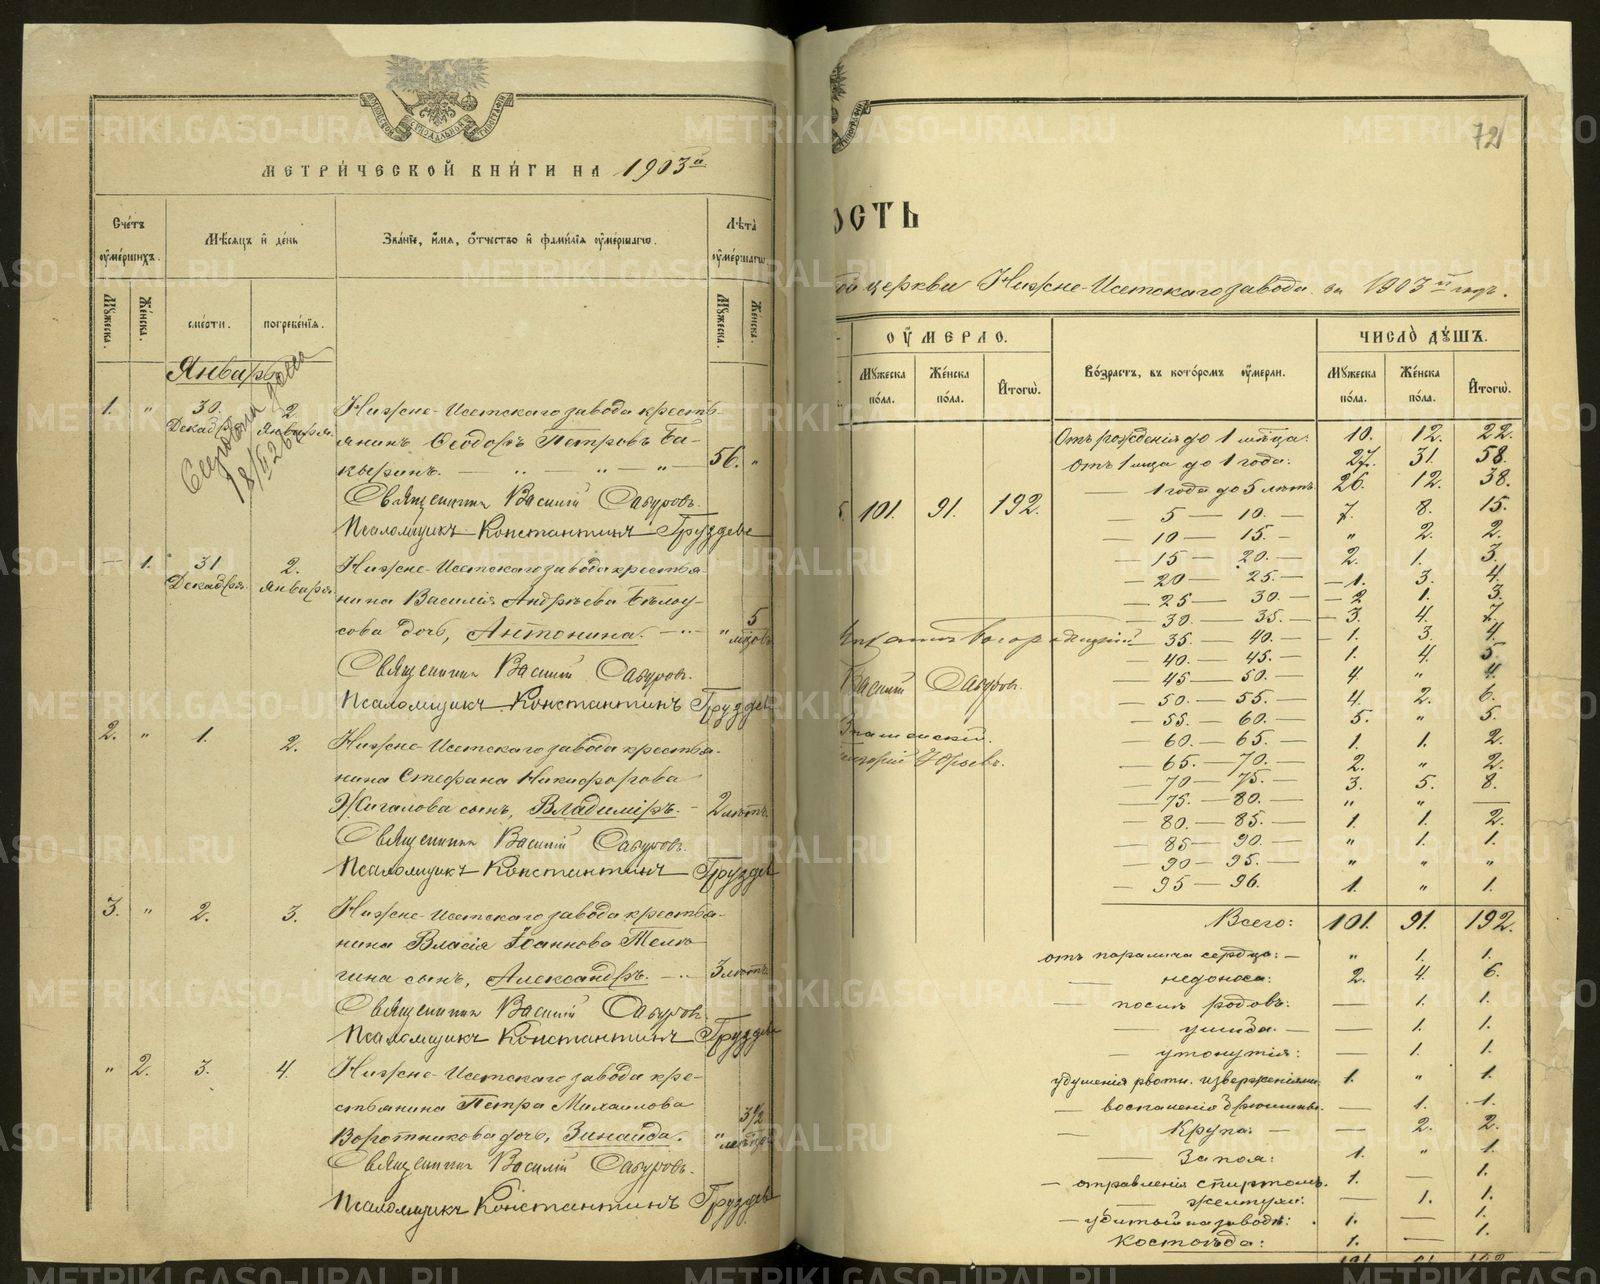 МЕТРИ́ЧЕСКОЙ КНИ́ГИ НА 1903й
Сче́тъ ѹ҆ме́ршихъ.
Мѣ́сяцъ и҆ де́нь
Зва́нїе, и҆́мя, ѻ҆́тчество и҆ фами́лїя ѹ҆ме́ршагѡ.
Лѣ́та ѹ҆ме́ршагѡ
Мꙋ́жеска.
Же́нска.
сме́рти.
погребе́нїя.
Мꙋ́жеска.
Же́нска.
Январь
1. " 30. Декабр. 2. Января.
Нижне-Исетскаго завода кресть-
янинъ Ѳеодоръ Петровъ Ба-
кыринъ. — " " — " — 56. "
Священникъ Василій Сабуровъ.
Псаломщикъ Константинъ Груздевъ
— 1. 31 Декабря. 2. Января.
Нижне-Исетскаго завода крестья-
нина Василія Андрѣева Бѣлоу-
сова дочь, Антонина. — " 5 мцовъ
Священникъ Василій Сабуровъ.
Псаломщикъ Константинъ Груздевъ
2. " 1. 2.
Нижне-Исетскаго завода крестья-
нина Стефана Никифорова
Жигалова сынъ, Владиміръ. — 2 лѣтъ.
Священникъ Василій Сабуровъ.
Псаломщикъ Константинъ Груздевъ
3. " 2. 3.
Нижне-Исетскаго завода крестья-
нина Власія Іоаннова Теля-
гина сынъ, Александръ. — 3 лѣтъ
Священникъ Василій Сабуровъ.
Псаломщикъ Константинъ Груздевъ
" 2. 3. 4.
Нижне-Исетскаго завода кре-
стьянина Петра Михаилова
Воротникова дочь, Зинаида. " 3½
Священникъ Василій Сабуровъ.
Псаломщикъ Константинъ Груздевъ
72
ОСТЬ
церкви Нижне-Исетскаго завода за 1903й годъ.
ОУ҆́МЕРЛО.
ЧИСЛО̀ ДꙊ́ШЪ.
Мꙋ́жеска по́ла.
Же́нска по́ла.
И҆тогѡ̀.
Во́зрастъ, въ кото́ромъ ѹ҆́мерли.
Мꙋ́жеска по́ла.
Же́нска по́ла.
И҆тогѡ̀.
101. 91. 192.
Отъ рожденія до 1 мѣсяца: 10. 12. 22.
отъ 1 мца до 1 года: 27. 31 58.
— 1 года до 5 лѣтъ 26. 12. 38.
— 5 — 10. — 7. 8. 15.
— 10 — 15. — " 2. 2.
— 15 — 20. — 2. 1. 3.
— 20 — 25. — 1. 3. 4.
— 25 — 30. — 2 1. 3.
— 30. — 35. — 3. 4. 7.
— 35. — 40. — 1. 3. 4.
— 40. — 45. — 1. 4. 5.
— 45 — 50. — 4. " 4.
— 50. — 55. — 4. 2. 6.
— 55. — 60. — 5. " 5.
— 60. — 65. — 1. 1. 2.
— 65. — 70. — 2. " 2.
— 70 — 75. — 3. 5. 8.
— 75. — 80. — " " —
— 80. — 85. — 1. 1. 2.
— 85 — 90. — " 1. 1.
— 90 — 95. — " " "
— 95 — 96. 1. " 1.
Василій Сабуровъ.
Юрьевъ.
Всего: 101. 91. 192.
отъ паралича сердца: — " 1. 1.
— недоноса: 2. 4. 6.
— послѣ родовъ: — 1. 1.
— ушиба. — — 1. 1.
— утонутія: — 1. 1.
удушенія рвотн. изверженіями. 1. " 1.
— воспаленія брюшины. — 1. 1.
— Крупа: — — 2. 2.
— Запоя: 1. " 1.
— отравленія спиртомъ. 1. — 1.
— желтухи: — 1. 1.
— убитый на заводѣ: 1. — 1.
Костоѣда: 1. — 1.
METRIKI.GASO-URAL.RU